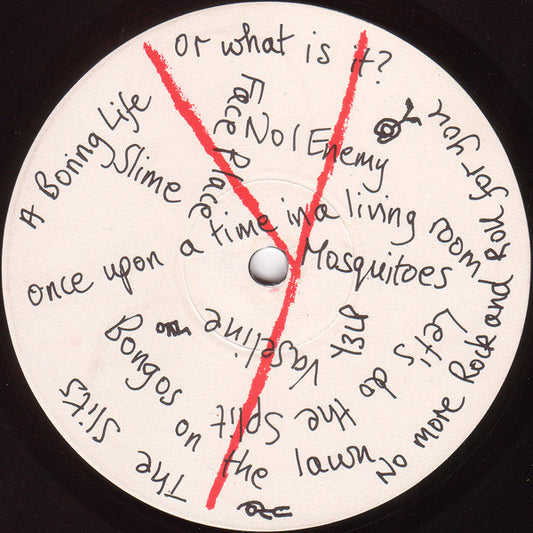 Or what is it?
A Boring Life
Slime
Face Place
No 1 Enemy
once upon a time in a living room
Mosquitoes
Vaseline
Bongos on the lawn
Let's do the split
No more Rock and Roll for you
The Slits
Y3LP